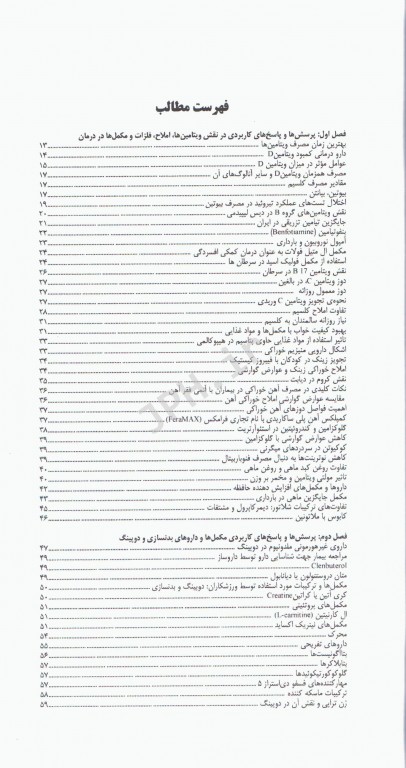 فهرست مطالب
فصل اول: پرسش‌ها و پاسخ‌های کاربردی در نقش ویتامین‌ها، املاح، فلزات و مکمل‌ها در درمان
بهترین زمان مصرف ویتامین‌ها ۱۳
دارو درمانی کمبود ویتامین D ۱۴
عوامل مؤثر در میزان ویتامین D ۱۵
مصرف همزمان ویتامین D و سایر آنالوگ‌های آن ۱۷
مقادیر مصرف کلسیم ۱۷
بیوتین، بیانتن ۱۷
اختلال تست‌های عملکرد تیروئید در مصرف بیوتین ۱۹
نقش ویتامین‌های گروه B در دیس لیپیدمی ۲۰
جایگزین تیامین تزریقی در ایران ۲۱
بنفوتیامین (Benfotiamine) ۲۲
آمپول نوروبیون و بارداری ۲۳
مکمل ال متیل فولات به عنوان درمان کمکی افسردگی ۲۴
استفاده از مکمل فولیک اسید در سرطان ها ۲۴
نقش ویتامین B 17 در سرطان ۲۶
دوز ویتامین C، در بالغین ۲۷
دوز معمول روزانه ۲۷
نحوه‌ی تجویز ویتامین C وریدی ۲۷
تفاوت املاح کلسیم ۲۸
نیاز روزانه سالمندان به کلسیم ۳۱
بهبود کیفیت خواب با مکمل‌ها و مواد غذایی ۳۱
تاثیر استفاده از مواد غذایی حاوی پتاسیم در هیپوکالمی ۳۳
اشکال دارویی منیزیم خوراکی ۳۳
تجویز زینک در کودکان با فیبروز کیستیک ۳۴
املاح خوراکی زینک و عوارض گوارشی ۳۴
نقش کروم در دیابت ۳۵
نکات کلیدی در مصرف آهن خوراکی در بیماران با آنمی فقر آهن ۳۶
مقایسه عوارض گوارشی املاح خوراکی آهن ۳۶
اهمیت فواصل دوزهای آهن خوراکی ۳۷
کمپلکس آهن پلی ساکاریدی با نام تجاری فرامکس (FeraMAX) ۳۷
گلوکزآمین و کندرویتین در استئوآرتریت ۳۸
کاهش عوارض گوارشی با گلوکزآمین ۳۹
کوکیوتن در سردردهای میگرنی ۳۹
کاهش نوترینت‌ها به دنبال مصرف فنوباربیتال ۳۹
تفاوت روغن کبد ماهی و روغن ماهی ۴۰
تاثیر مولتی ویتامین و مخمر بر وزن ۴۰
داروها و مکمل‌های افزایش دهنده حافظه ۴۲
مکمل جایگزین ماهی در بارداری ۴۳
تفاوت‌های ترکیبات شلاتور: دیمرکاپرول و مشتقات ۴۵
کابوس با ملاتونین ۴۶
فصل دوم: پرسش‌ها و پاسخ‌های کاربردی مکمل‌ها و داروهای بدنسازی و دوپینگ
داروی غیرهورمونی ملدونیوم در دوپینگ ۴۷
مراجعه بیمار جهت شناسایی دارو توسط داروساز ۴۹
Clenbuterol ۴۹
متان دروستنولون یا دیانابول ۴۹
مکمل‌ها و ترکیبات مورد استفاده توسط ورزشکاران: دوپینگ و بدنسازی ۵۰
کری آتین یا کراتین Creatine ۵۰
مکمل‌های پروتئینی ۵۱
ال کارنیتین (L-carnitine) ۵۱
مکمل‌های نیتریک اکساید ۵۱
محرک ۵۴
داروهای تفریحی ۵۵
بتاآگونیست‌ها ۵۶
بتابلاکرها ۵۷
گلوکوکورتیکوئیدها ۵۷
مهارکننده‌های فسفو دی‌استراز ۵ ۵۷
ترکیبات ماسکه کننده ۵۸
ژن تراپی و نقش آن در دوپینگ ۵۹